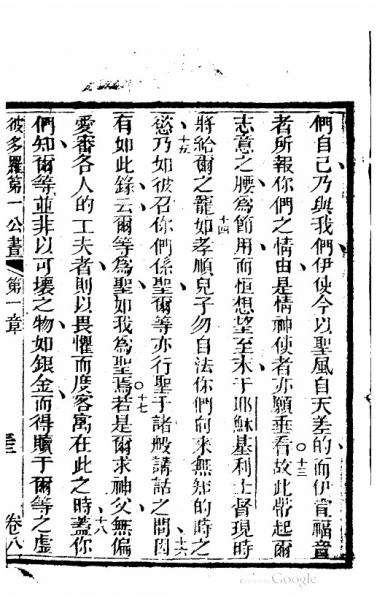 們自己乃與我們伊使今以聖風自天差的而伊宣福音
者所報你們之情由是情神使者亦願垂看故此帶起爾 十三
志意之腰為節用而恒想望至末于耶穌基利士督現時
將給爾之寵如孝順兒子勿自法你們向來無知的時之 十四
慾乃如彼召你們係聖爾等亦行聖于諸般講話之間因 十五 十六
有如此錄云爾等為聖如我為聖焉若是爾求神父無偏 十七
愛審各人的工夫者則以畏懼而度客寓在此之時蓋你 十八
們知爾等並非以可壞之物如銀金而得贖于爾等之虛
彼多羅第一公書 第一章 卷八
Google